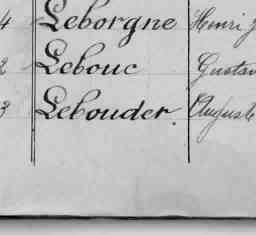 4 Leborgne Henri J
2 Lebouc Gustav
3 Lebouder. Auguste